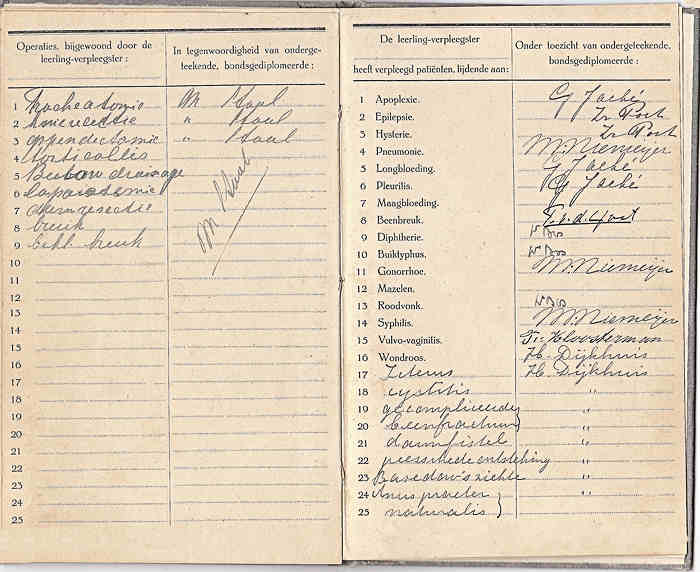 Operaties, bijgewoond door de
leerling-verpleegster :
In tegenwoordigheid van onderge-
teekende, bondsgediplomeerde :
1 Tracheatomie M Staal
2 " Staal
3 appendectomie " Staal
4 torticollis
5 drainage
6 laparotomie
7 darmresectie
8 breuk
9 breuk
M Staal
10
11
12
13
14
15
16
17
18
19
20
21
22
23
24
25
De leerling-verpleegster
heeft verpleegd patiënten, lijdende aan:
Onder toezicht van ondergeteekende,
bondsgediplomeerde :
1 Apoplexie. G Jaché
2 Epilepsie. Zr Post
3 Hysterie. Zr Post
4 Pneumonie. M. Niemeijer
5 Longbloeding. G Jaché
6 Pleuritis. G Jaché
7 Maagbloeding.
8 Beenbreuk.
9 Diphtherie.
10 Buiktyphus.
11 Gonorrhoe. M. Niemeijer
12 Mazelen.
13 Roodvonk.
14 Syphilis. M. Niemeijer
15 Vulvo-vaginitis. Kloosterman
16 Wondroos. H. Dijkhuis
17 Icterus H. Dijkhuis
18 cystitis "
19 gecompliceerde "
20 beenfractuur "
21 darmfistel "
22 peesschedeontsteking "
23 Basedow's ziekte "
24 Anus praeter "
25 naturalis